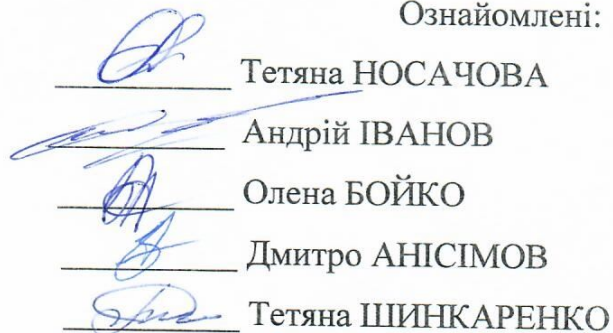 Ознайомлені:
Тетяна НОСАЧОВА
Андрій ІВАНОВ
Олена БОЙКО
Дмитро АНІСІМОВ
Тетяна ШИНКАРЕНКО